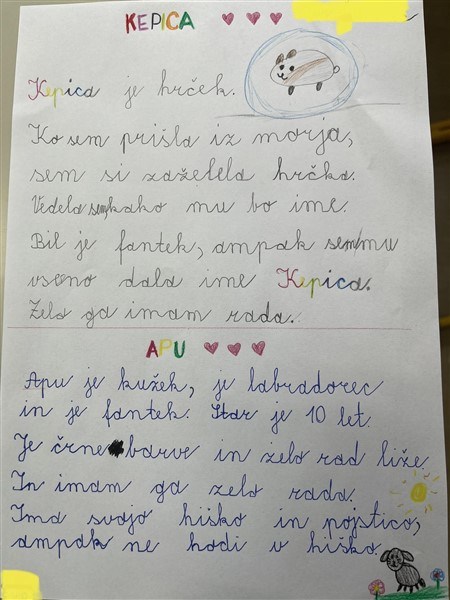 KEPICA
Kepica je hrček.
Ko sem prišla iz morja,
sem si zaželela hrčka.
Vedela sem kako mu bo ime.
Bil je fantek, ampak sem mu
vseno dala ime Kepica.
Zelo ga imam rada.
APU
Apu je kužek, je labradorec
in je fantek. Star je 10 let.
Je črne barve in zelo rad liže.
In imam ga zelo rada.
Ima svojo hiško in pojstlco,
ampak ne hodi v hiško.